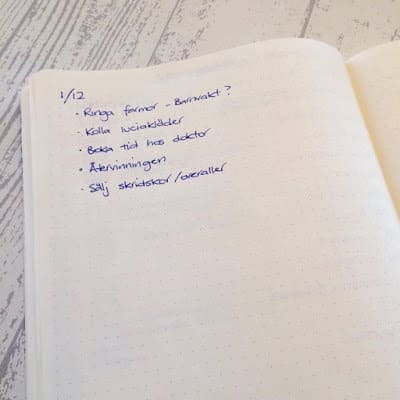 1/12
· Ringa farmor - Barnvakt?
· Kolla luciakläder
· Boka tid hos doktor
· Återvinningen
· Sälj skridskor/overaller